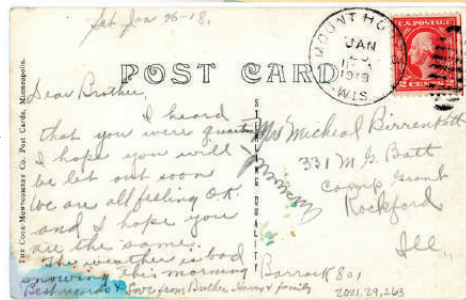 Sat Jan 26-18.
MOUNT HO
JAN
1918
WIS.
U.S. POSTAGE
2 CENTS 2
POST CARD
THE COOK-MONTGOMERY CO. Post Cards, Minneapolis.
STERLING QUALITY
Dear Brother,
I heard
that you were
I hope you will
be let out soon
we are all feeling O.K.
and I hope you
are the same.
The weather is bad
snowing this morning
Best regards & Love from Brother Henry & family
Mr Micheal Birrenkott
331 M G Batt
camp Grant
Rockford
Ill.
Barrack 801
2021.29.263